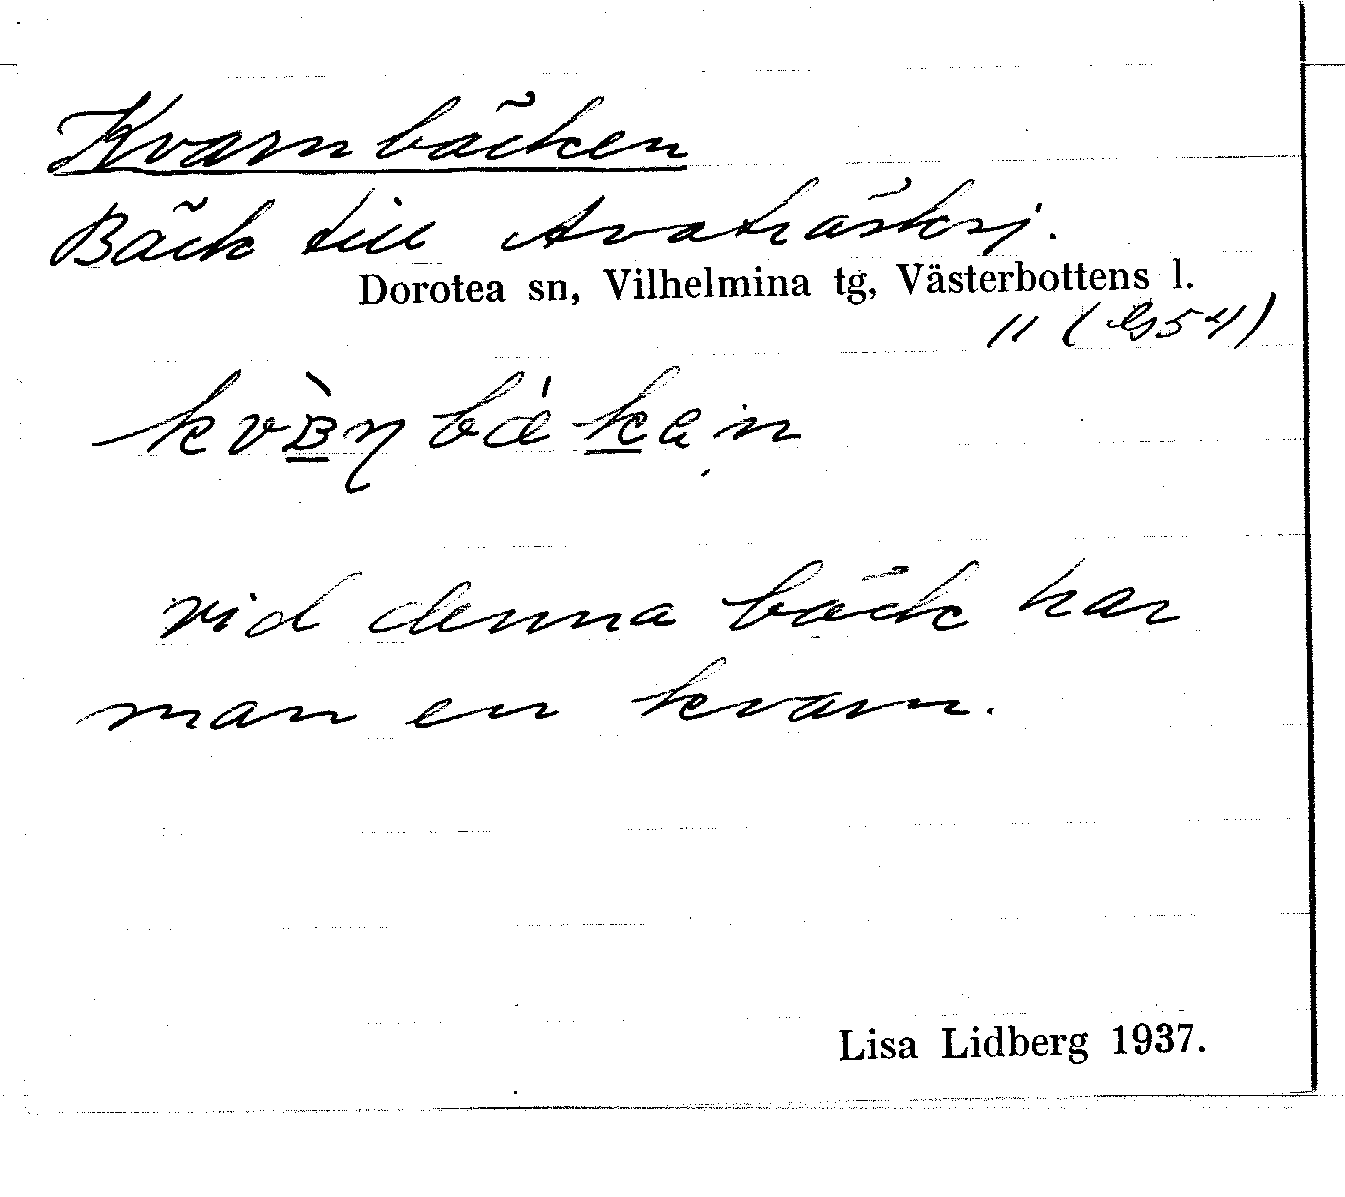 Kvarnbäcken
Bäck till Avaträsksj.
Dorotea sn, Vilhelmina tg, Västerbottens l.
11 (Gs 54)
vid denna bäck har
man en kvarn.
Lisa Lidberg 1937.